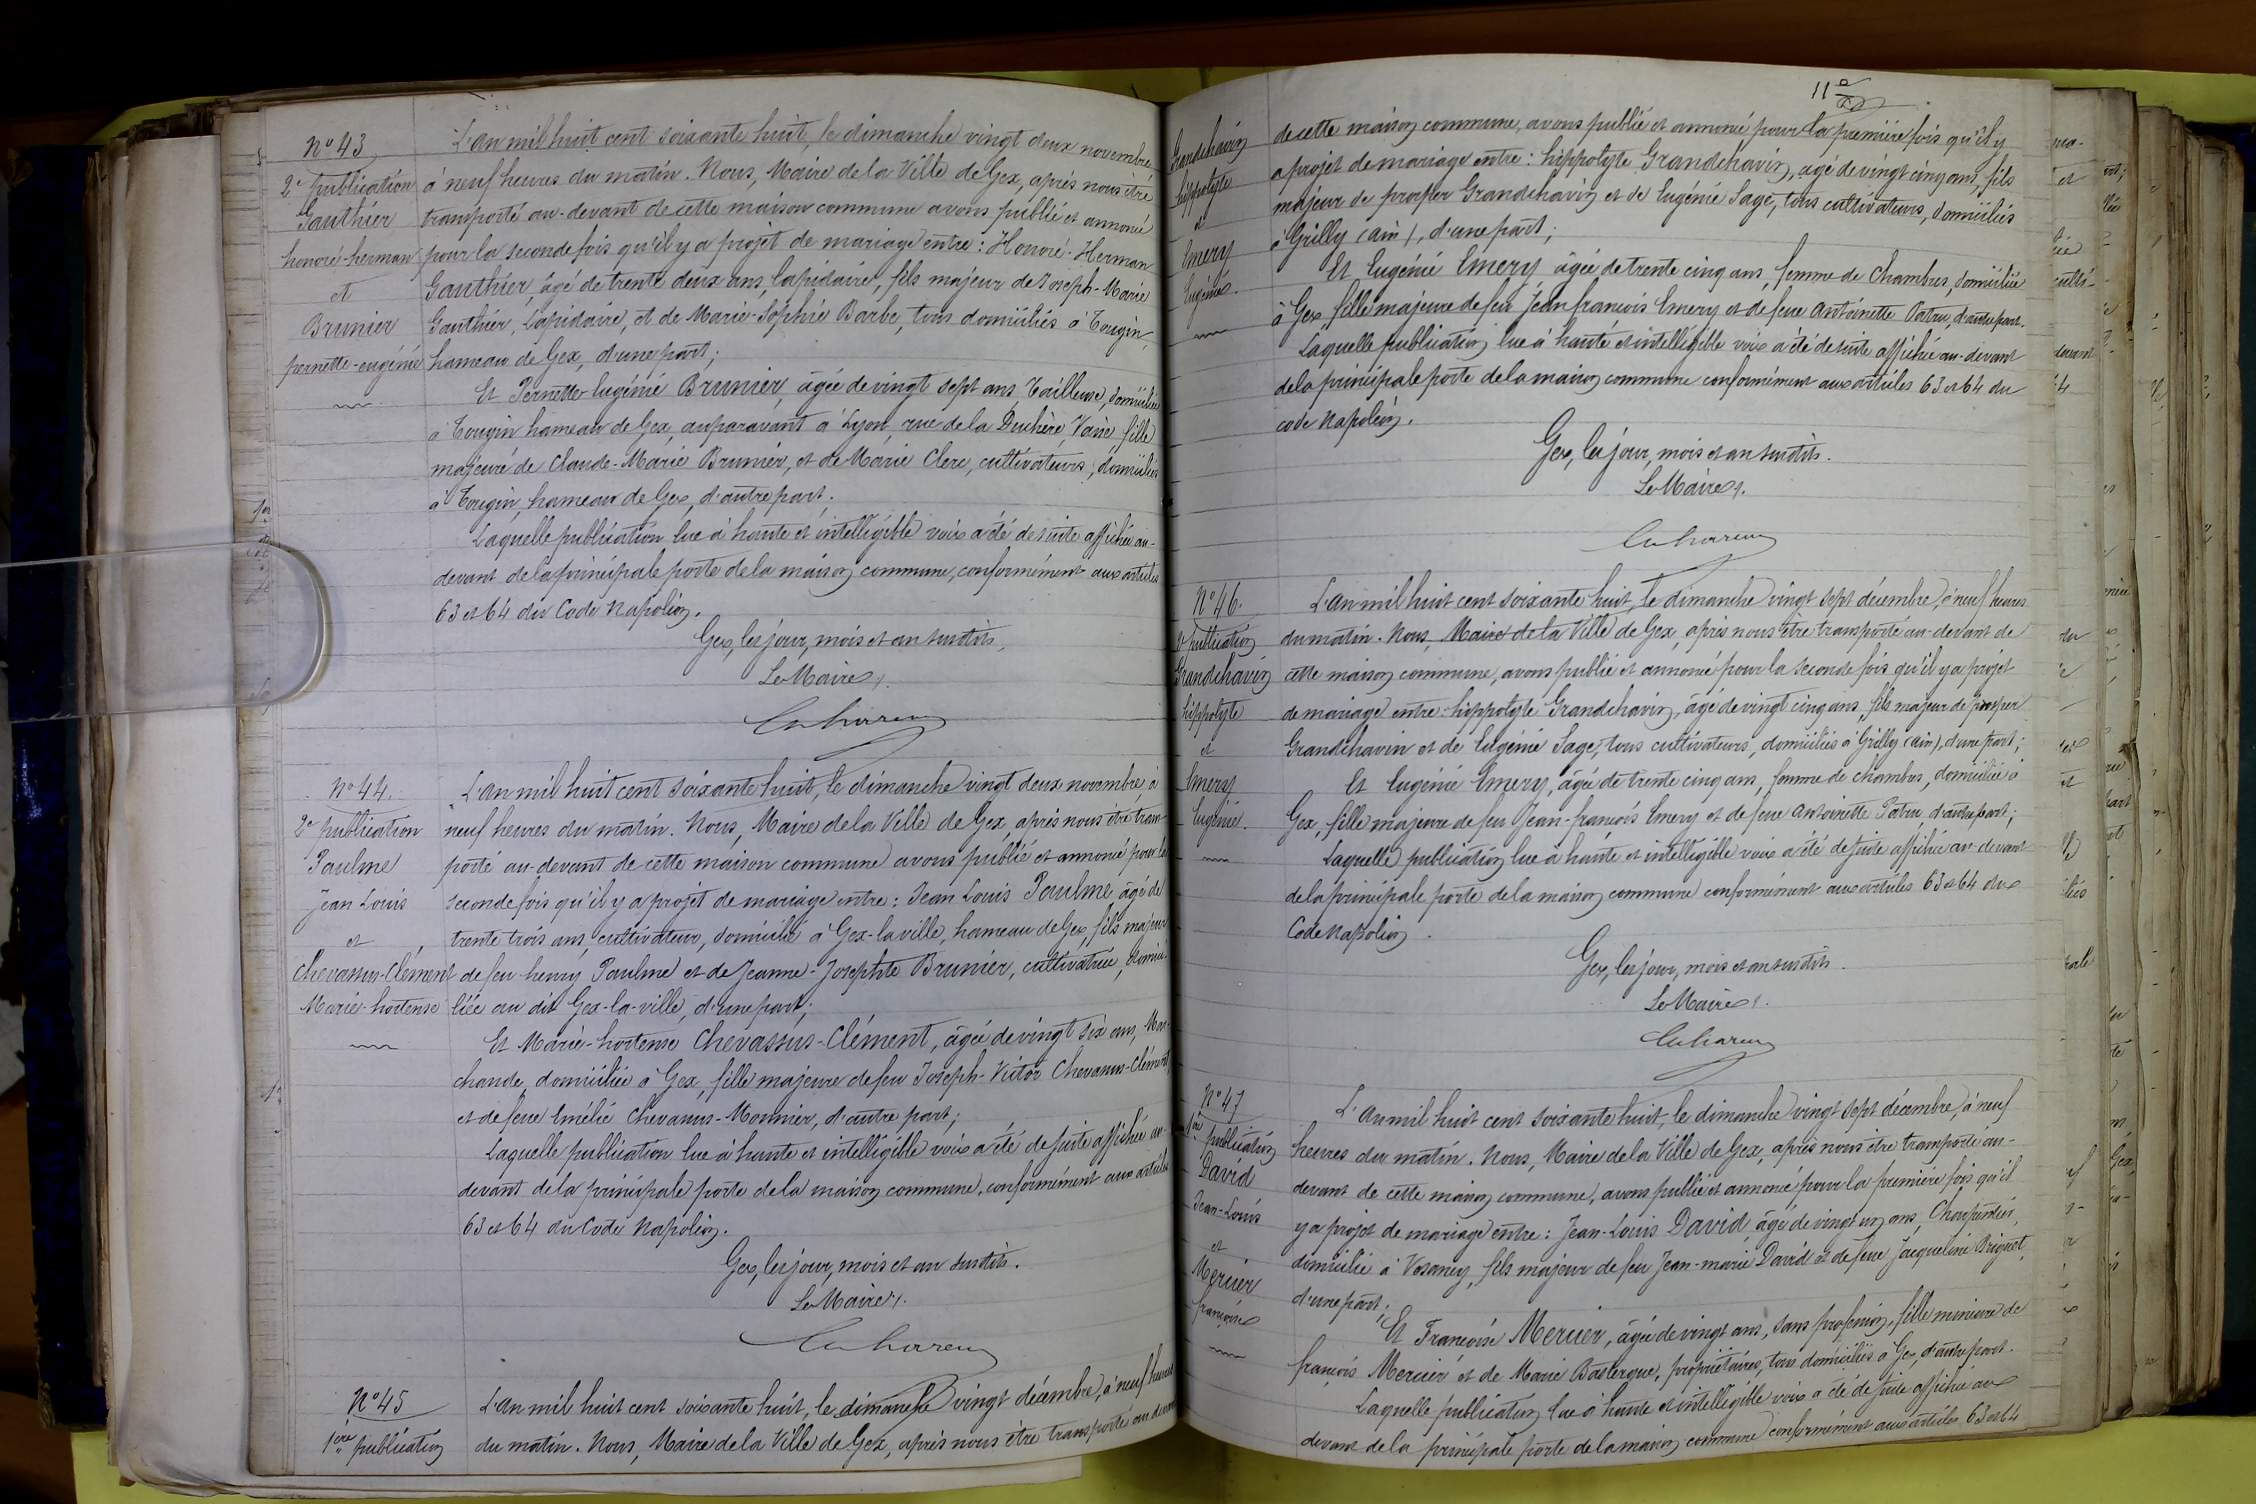 N° 43
2e publication
Gauthier
honoré-herman
et
Brunier
pernette-eugénie
L'an mil huit cent soixante huit, le dimanche vingt deux novembre
à neuf heures du matin. Nous, Maire de la Ville de Gex, après nous être
transporté au-devant de cette maison commune avons publié et annoncé
pour la seconde fois qu'il y a projet de mariage entre : Honoré-Herman
Gauthier, âgé de trente deux ans, lapidaire, fils majeur de Joseph-Marie
Gauthier, Lapidaire, et de Marie-Sophie Barbe, tous domiciliés à Tougin
hameau de Gex, d'une part;
Et Pernette-Eugénie Brunier, âgée de vingt sept ans Tailleuse, domiciliée
à Tougin hameau de Gex, auparavant à Lyon, rue de la Duchère, Vaise fille
majeure de Claude-Marie Brunier, et de Marie Clerc, cultivateurs, domiciliés
à Tougin, hameau de Gex, d'autre part.
Laquelle publication lue à haute et intelligible voix a été de suite affichée au-
devant de la principale porte de la maison commune, conformément aux articles
63 et 64 du Code Napoléon.
Gex, les jour, mois et an susdits,
Le Maire,
N° 44.
2e publication
Paulme
Jean Louis
et
Chevassus-Clément
Marie-hortense
L'an mil huit cent soixante huit, le dimanche vingt deux novembre à
neuf heures du matin. Nous, Maire de la Ville de Gex, après nous être trans-
porté au-devant de cette maison commune avons publié et annoncé pour la
seconde fois qu'il y a projet de mariage entre : Jean Louis Paulme âgé de
trente trois ans, cultivateur, domicilié à Gex-la-ville, hameau de Gex, fils majeur
de feu henry Paulme et de Jeanne-Josephte Brunier, cultivatrice, domici-
liée au dit Gex-la-ville, d'une part;
Et Marie-hortense Chevassus-Clément, âgée de vingt six ans, Mar-
chande, domiciliée à Gex, fille majeure de feu Joseph-Victor Chevassus-Clément
et de feue Emélie Chevassus-Monnier, d'autre part;
Laquelle publication lue à haute et intelligible voix a été de suite affichée au-
devant de la principale porte de la maison commune, conformément aux articles
63 et 64 du Code Napoléon.
Gex, les jour, mois et an susdits.
Le Maire,
N° 45
1ère publication
L'an mil huit cent soixante huit, le dimanche vingt décembre, à neuf heures
du matin. Nous, Maire de la Ville de Gex, après nous être transporté au devant
11e
Grandchavin
hippolyte
et
Emery
Eugénie.
de cette maison commune, avons publié et annoncé pour la première fois qu'il y
a projet de mariage entre : hippolyte Grandchavin, âgé de vingt cinq ans, fils
majeur de prosper Grandchavin et de Eugénie Sage, tous cultivateurs, domiciliés
à Grilly (ain), d'une part;
Et Eugénie Emery âgée de trente cinq ans, femme de chambre, domiciliée
à Gex, fille majeure de feu Jean francois Emery et de feue Antoinette Patru, d'autre part.
Laquelle publication lue à haute et intelligible voix a été de suite affichée au-devant
de la principale porte de la maison commune conformément aux articles 63 et 64 du
code Napoléon.
Gex, les jour, mois et an susdits.
Le Maire,
N° 46.
2e publication
Grandchavin
hippolyte
et
Emery
Eugénie.
L'an mil huit cent soixante huit, le dimanche vingt sept décembre, à neuf heures
du matin. Nous, Maire de la Ville de Gex, après nous être transporté au-devant de
cette maison commune, avons publié et annoncé pour la seconde fois qu'il y a projet
de mariage entre : hippolyte Grandchavin, âgé de vingt cinq ans, fils majeur de prosper
Grandchavin et de Eugénie Sage, tous cultivateurs, domiciliés à Grilly (ain), d'une part;
Et Eugénie Emery, âgée de trente cinq ans, femme de chambre, domiciliée à
Gex, fille majeure de feu Jean-françois Emery et de feue Antoinette Patru, d'autre part;
Laquelle publication lue à haute et intelligible voix a été de suite affichée au-devant
de la principale porte de la maison commune conformément aux articles 63 et 64 du
Code Napoléon.
Gex, les jour, mois et an susdits.
Le Maire,
N° 47
1ère publication
David
Jean-Louis
et
Mercier
françoise
L'an mil huit cent soixante huit, le dimanche vingt sept décembre, à neuf
heures du matin. Nous, Maire de la Ville de Gex, après nous être transporté au-
devant de cette maison commune, avons publié et annoncé pour la première fois qu'il
y a projet de mariage entre : Jean-Louis David, âgé de vingt un ans, Charpentier,
domicilié à Vesancy, fils majeur de feu Jean-marie David et de feue Jacqueline Briguet,
d'une part;
Et Françoise Mercier, âgée de vingt ans, sans profession, fille mineure de
françois Mercier et de Marie Basterque, propriétaires, tous domiciliés à Gex, d'autre part.
Laquelle publication lue à haute et intelligible voix a été de suite affichée au
devant de la principale porte de la maison commune conformément aux articles 63 et 64